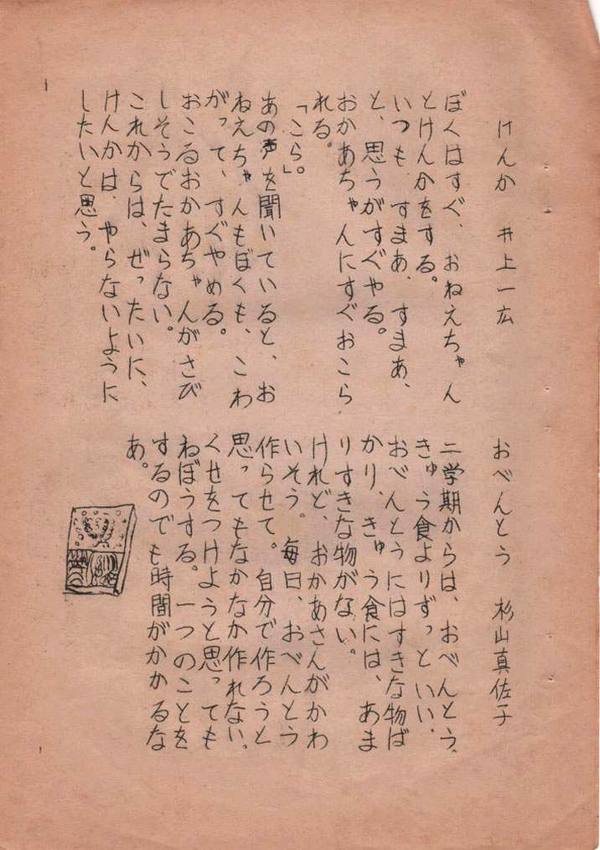 けんか　井上一広
ぼくはすぐ、おねえちゃん
とけんかをする。
いつも、すまあ、すまあ、
と、思うがすぐやる。
おかあちゃんにすぐおこら
れる。
「こら。」
あの声を聞いていると、お
ねえちゃんもぼくも、こわ
がって、すぐやめる。
おこるおかあちゃんがさび
しそうでたまらない。
これからは、ぜったいに、
けんかは、やらないように
したいと思う。
おべんとう　杉山真佐子
二学期からは、おべんとう、
きゅう食よりずっといい、
おべんとうにはすきな物ば
かり、きゅう食には、あま
りすきな物がない。
けれど、おかあさんがかわ
いそう。毎日、おべんとう
作らせて。自分で作ろうと
思ってもなかなか作れない。
くせをつけようと思っても
ねぼうする。一つのことを
するのでも時間がかかるな
あ。